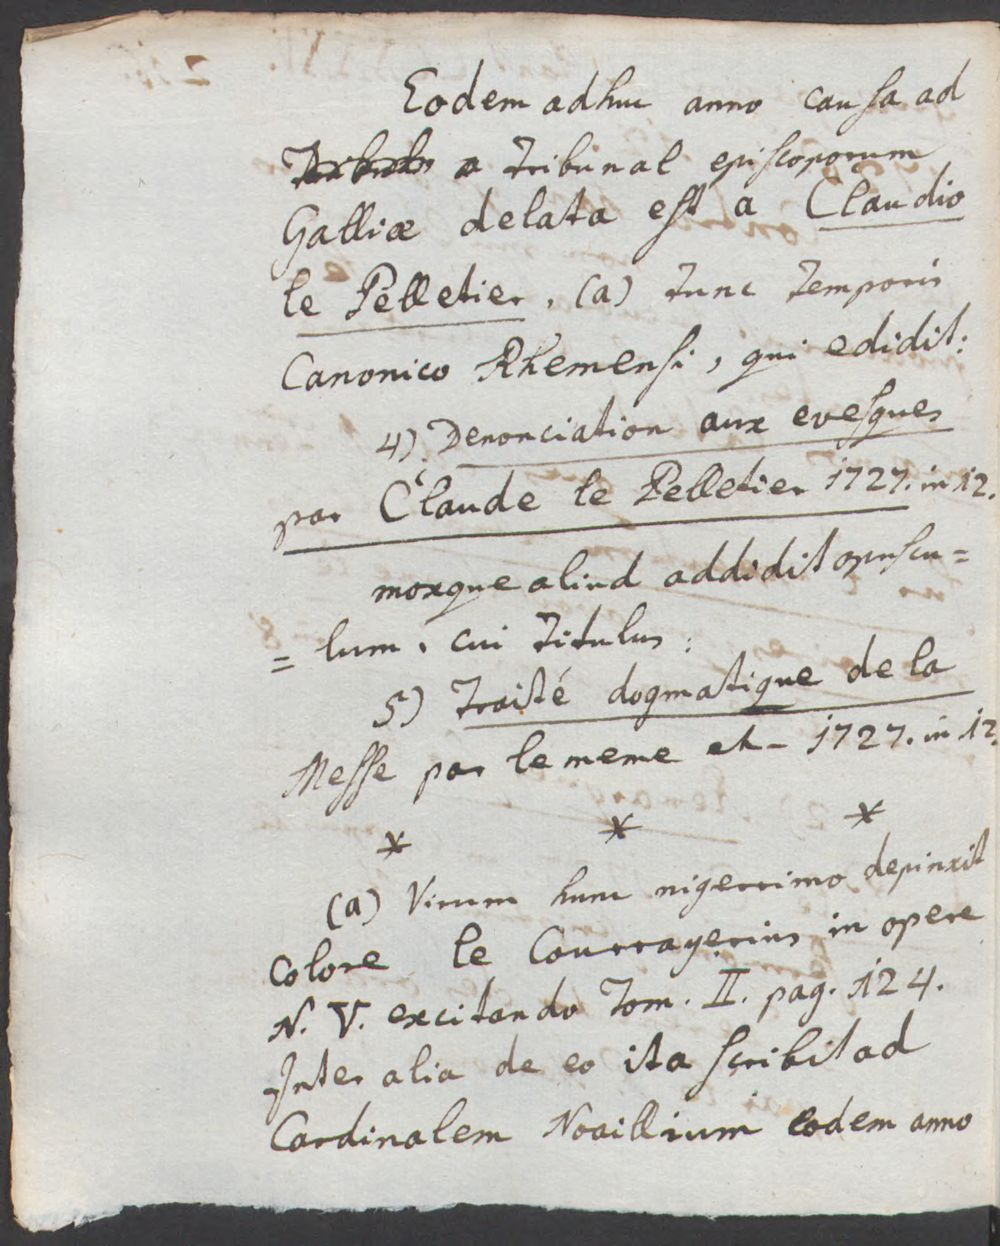 Eodem adhuc anno causa ad
a Tribunal episcoporum
Galliæ delata est a Claudio
le Pelletier, (a) tunc temporis
Canonico Rhemensi, qui edidit:
4) Denonciation aux evesques
par Claude le Pelletier 1727. in 12.
moxque aliud addidit opuscu=
=lum, cui titulus:
5) Traité dogmatique de la
Messe par le meme et- 1727. in 12.
* * *
(a) Virum hunc nigerrimo depinxit
colore le Courrayerius in opere
N. V. excitando Tom. II. pag. 124.
Inter alia de eo ita scribit ad
Cardinalem Noaillium eodem anno